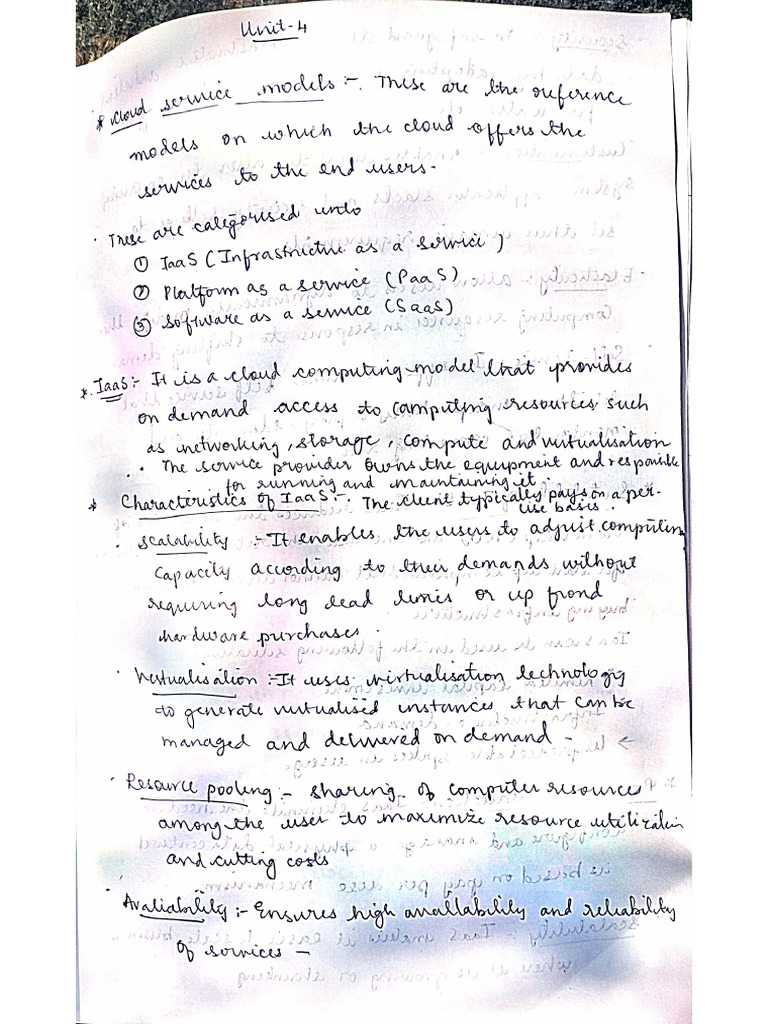 Unit-4
* Cloud service models :- These are the reference
models on which the cloud offers the
services to the end users-
· These are categorised into
① IaaS (Infrastructure as a service)
② Platform as a service (PaaS)
③ Software as a service (SaaS)
* IaaS :- It is a cloud computing model that provides
on demand access to computing resources such
as networking, storage, compute and virtualisation
· The service provider owns the equipment and responsible
for running and maintaining it.
* Characteristics of IaaS :- The client typically pays on a per-
use basis.
· Scalability :- It enables the users to adjust computing
capacity according to their demands without
requiring long lead times or up frond
hardware purchases.
· Virtualisation :- It uses virtualisation technology
to generate virtualised instances that can be
managed and delivered on demand -
· Resource pooling :- sharing of computer resources
among the user to maximize resource utilization
and cutting costs
· Avaliability :- Ensures high availability and reliability
of services -